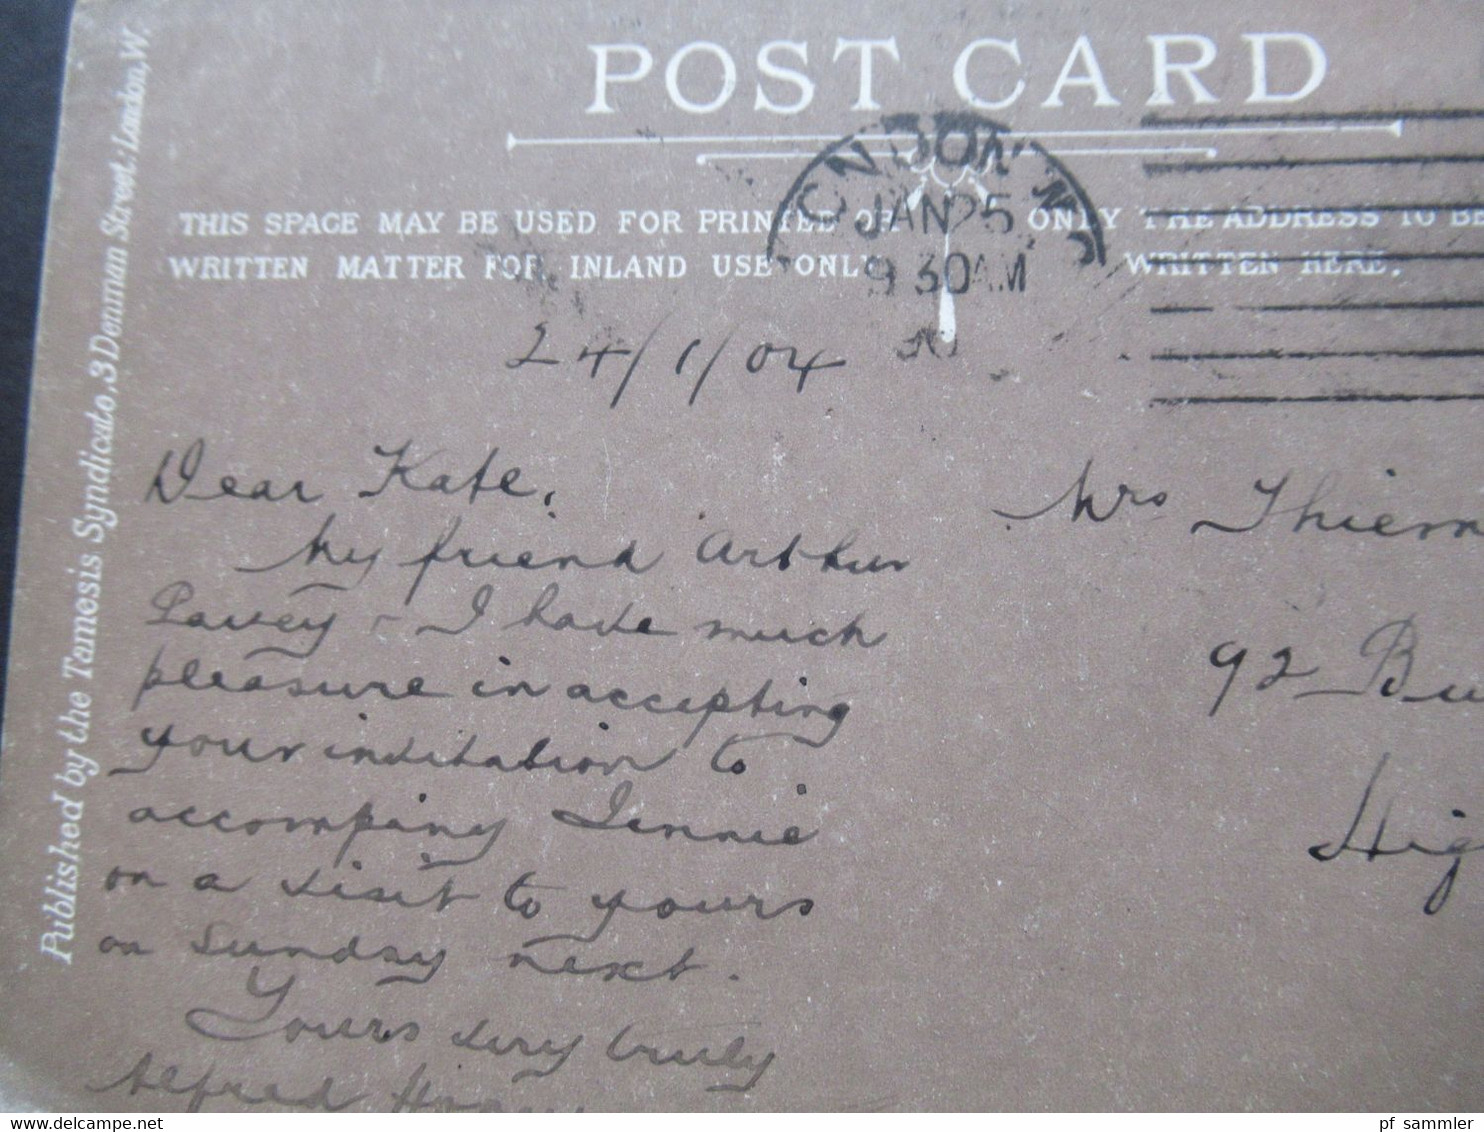 POST CARD
THIS SPACE MAY BE USED FOR PRINTED OR
WRITTEN MATTER FOR INLAND USE ONLY
ONLY THE ADDRESS TO BE
WRITTEN HERE.
LONDON N
JAN 25
9 30 AM
Published by the Tamosis Syndicate, 3 Denman Street: London, W.
24/1/04
Dear Kate,
My friend Arthur
Pavey - I have much
pleasure in accepting
your invitation to
accompiny Jennie
on a visit to yours
on Sunday next.
Yours very truly
Alfred
Mrs Thiem
92 Bu
Hig
pf_sammler